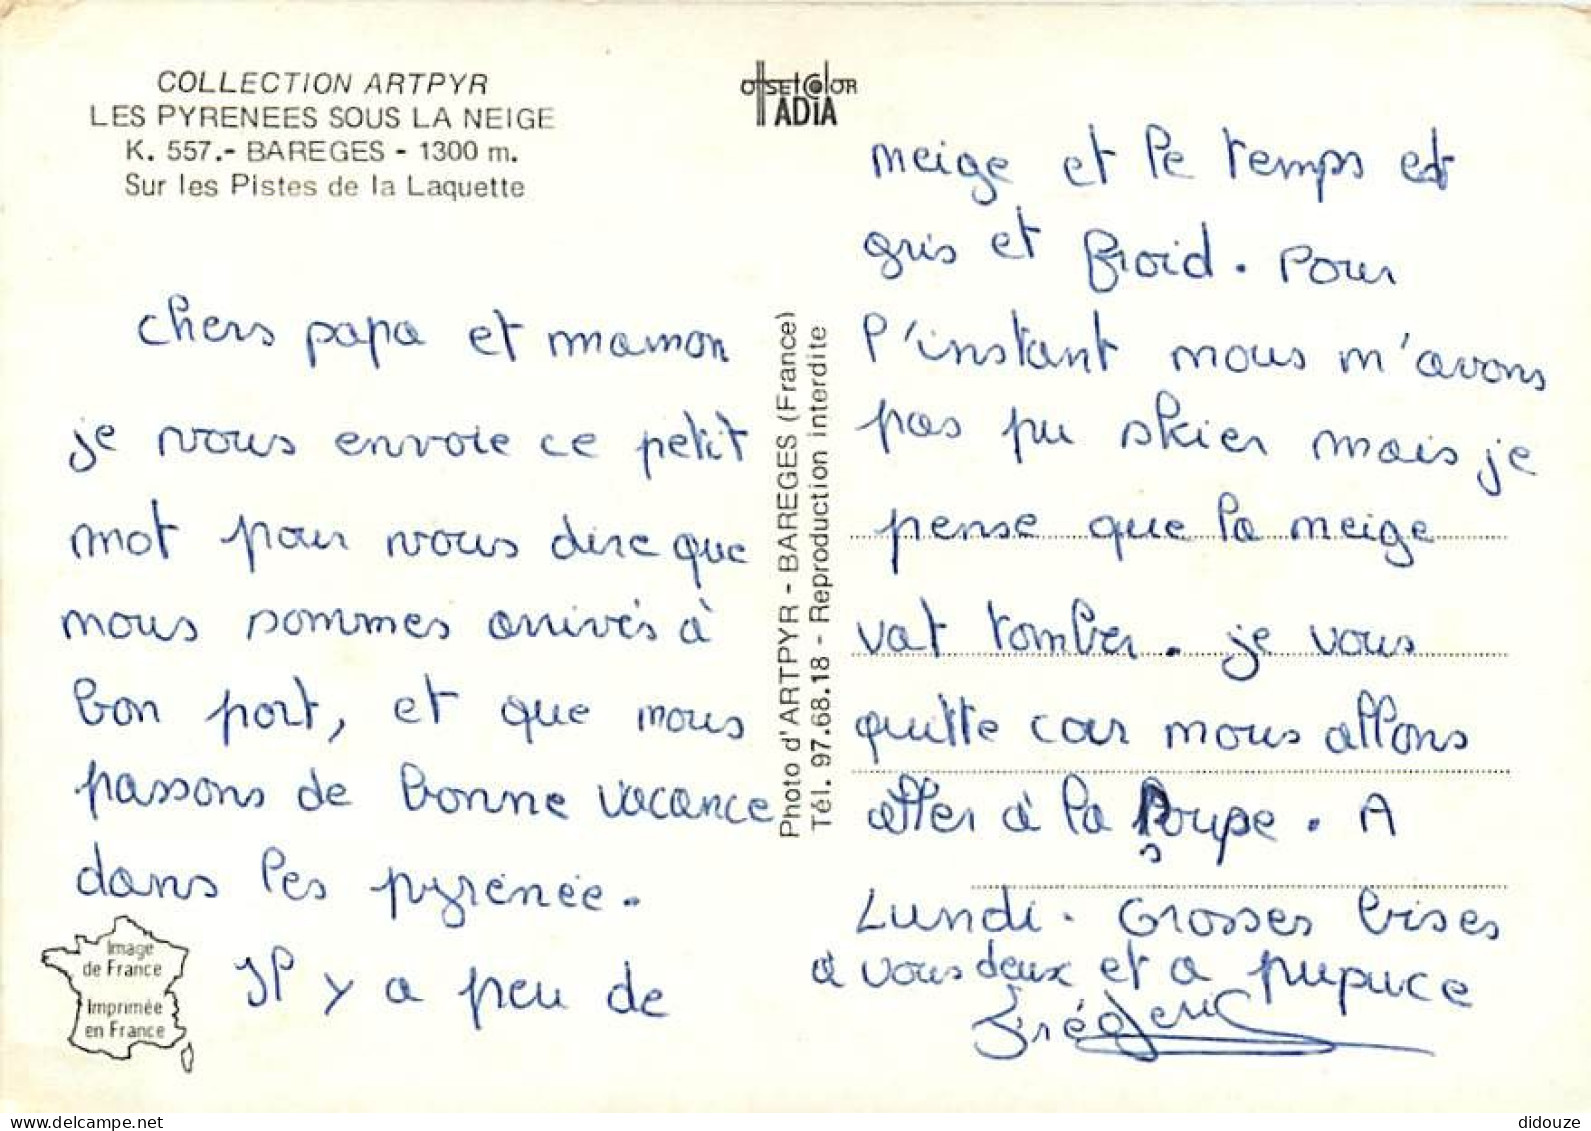 COLLECTION ARTPYR
LES PYRENEES SOUS LA NEIGE
K. 557.- BAREGES - 1300 m.
Sur les Pistes de la Laquette
chers papa et maman
je vous envoie ce petit
mot pour vous dire que
nous sommes arrivés à
bon port, et que nous
passons de bonne vacance
dans les pyrénée.
Il y a peu de
Image
de France
Imprimée
en France
Photo d'ARTPYR - BAREGES (France)
Tél. 97.68.18 - Reproduction interdite
offset color
ADIA
neige et le temps est
gris et froid. Pour
l'instant nous n'avons
pas pu skier mais je
pense que la neige
vat tomber. je vous
quitte car nous allons
aller à la soupe. A
Lundi. Grosses bises
à vous deux et a pupuce
Frédéric
delcampe.net
didouze